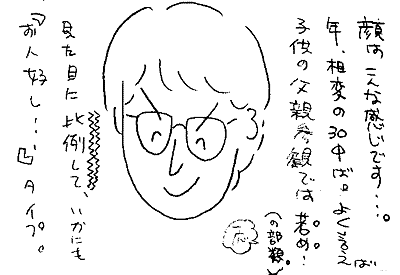 顔は こんな感じです・・・。
年、相変の30中ば。よく言えば
子供の父親参観では若め!
(の部類。
一応
見た目に比例して、いかにも
『お人好し・・・』タイプ。